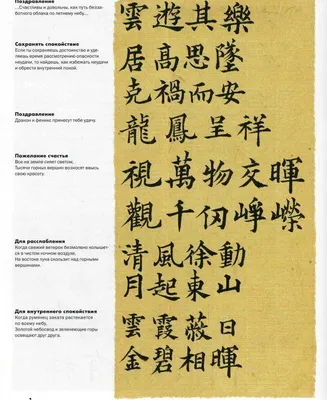 Поздравление
...Счастливы и довольны, как путь безза-
ботного облака по летнему небу...
雲遊其樂
Сохранять спокойствие
Если ты сохраняешь достоинство и уде-
ляешь время рассмотрению опасности
неудачи, то найдешь, как избежать неудачи
и обрести внутренний покой.
居高思墜
克禍而安
Поздравление
Дракон и феникс принесут тебе удачу.
龍鳳呈祥
Пожелание счастья
Все на земле сияет светом.
Тысячи горных вершин возносят ввысь
свою красоту.
視萬物交暉
觀千仞崢嶸
Для расслабления
Когда свежий ветерок безмолвно колышет-
ся в чистом ночном воздухе,
На востоке луна скользит над горными
вершинами.
清風徐動
月起東山
Для внутреннего спокойствия
Когда румянец заката растекается
по всему небу,
Золотой небосвод и зеленеющие горы
освещают друг друга.
雲霞蔽日
金碧相暉